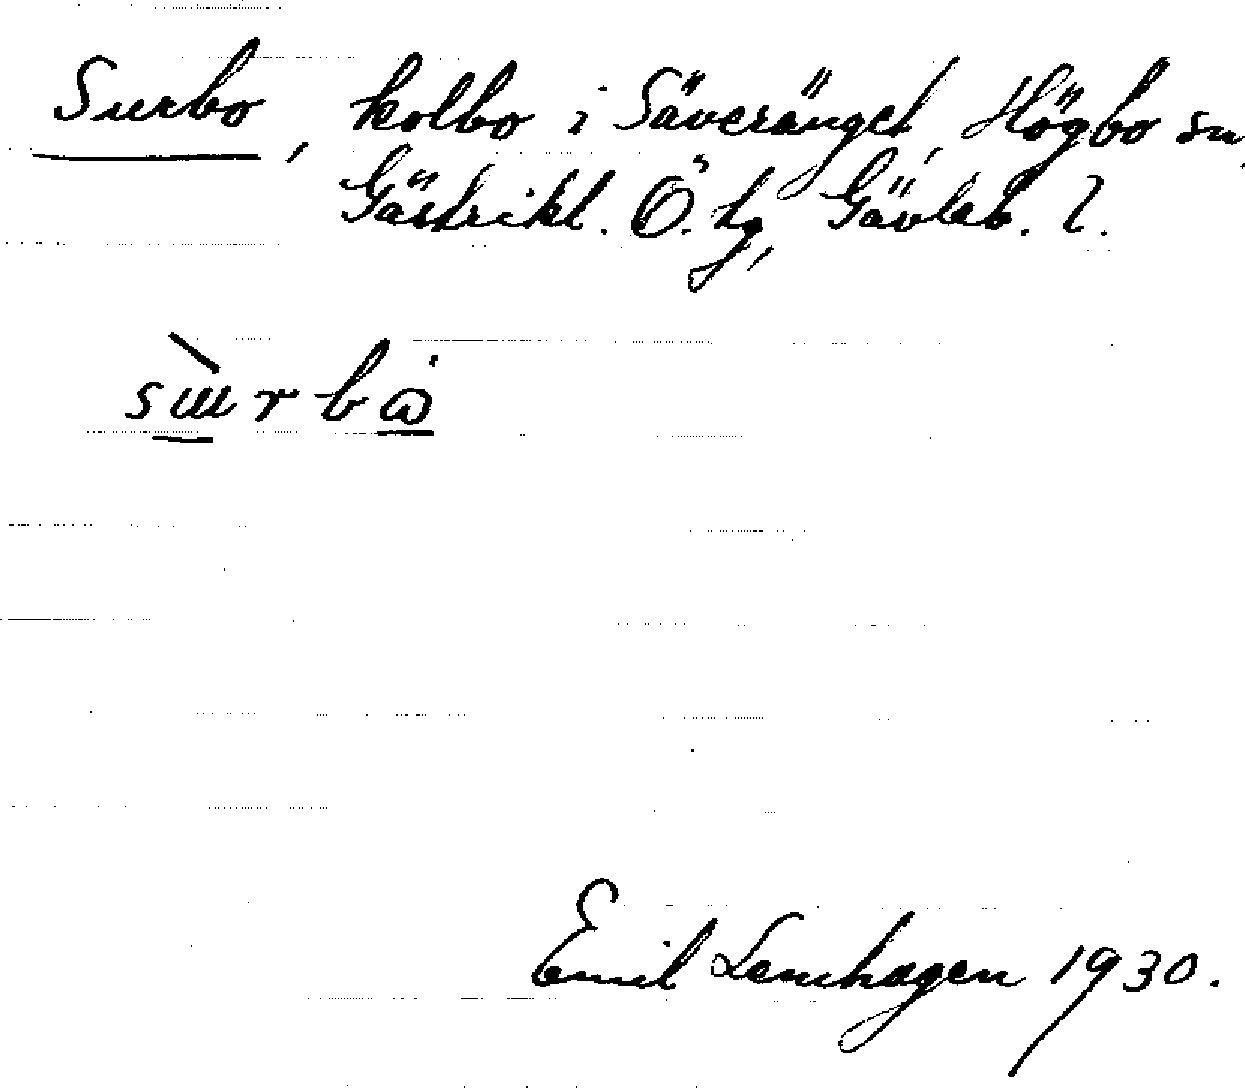 Surbo, kolbo i Säveränget, Högbo sn,
Gästrikl. Ö. hg, Gävleb. l.
Emil Lemhagen 1930.